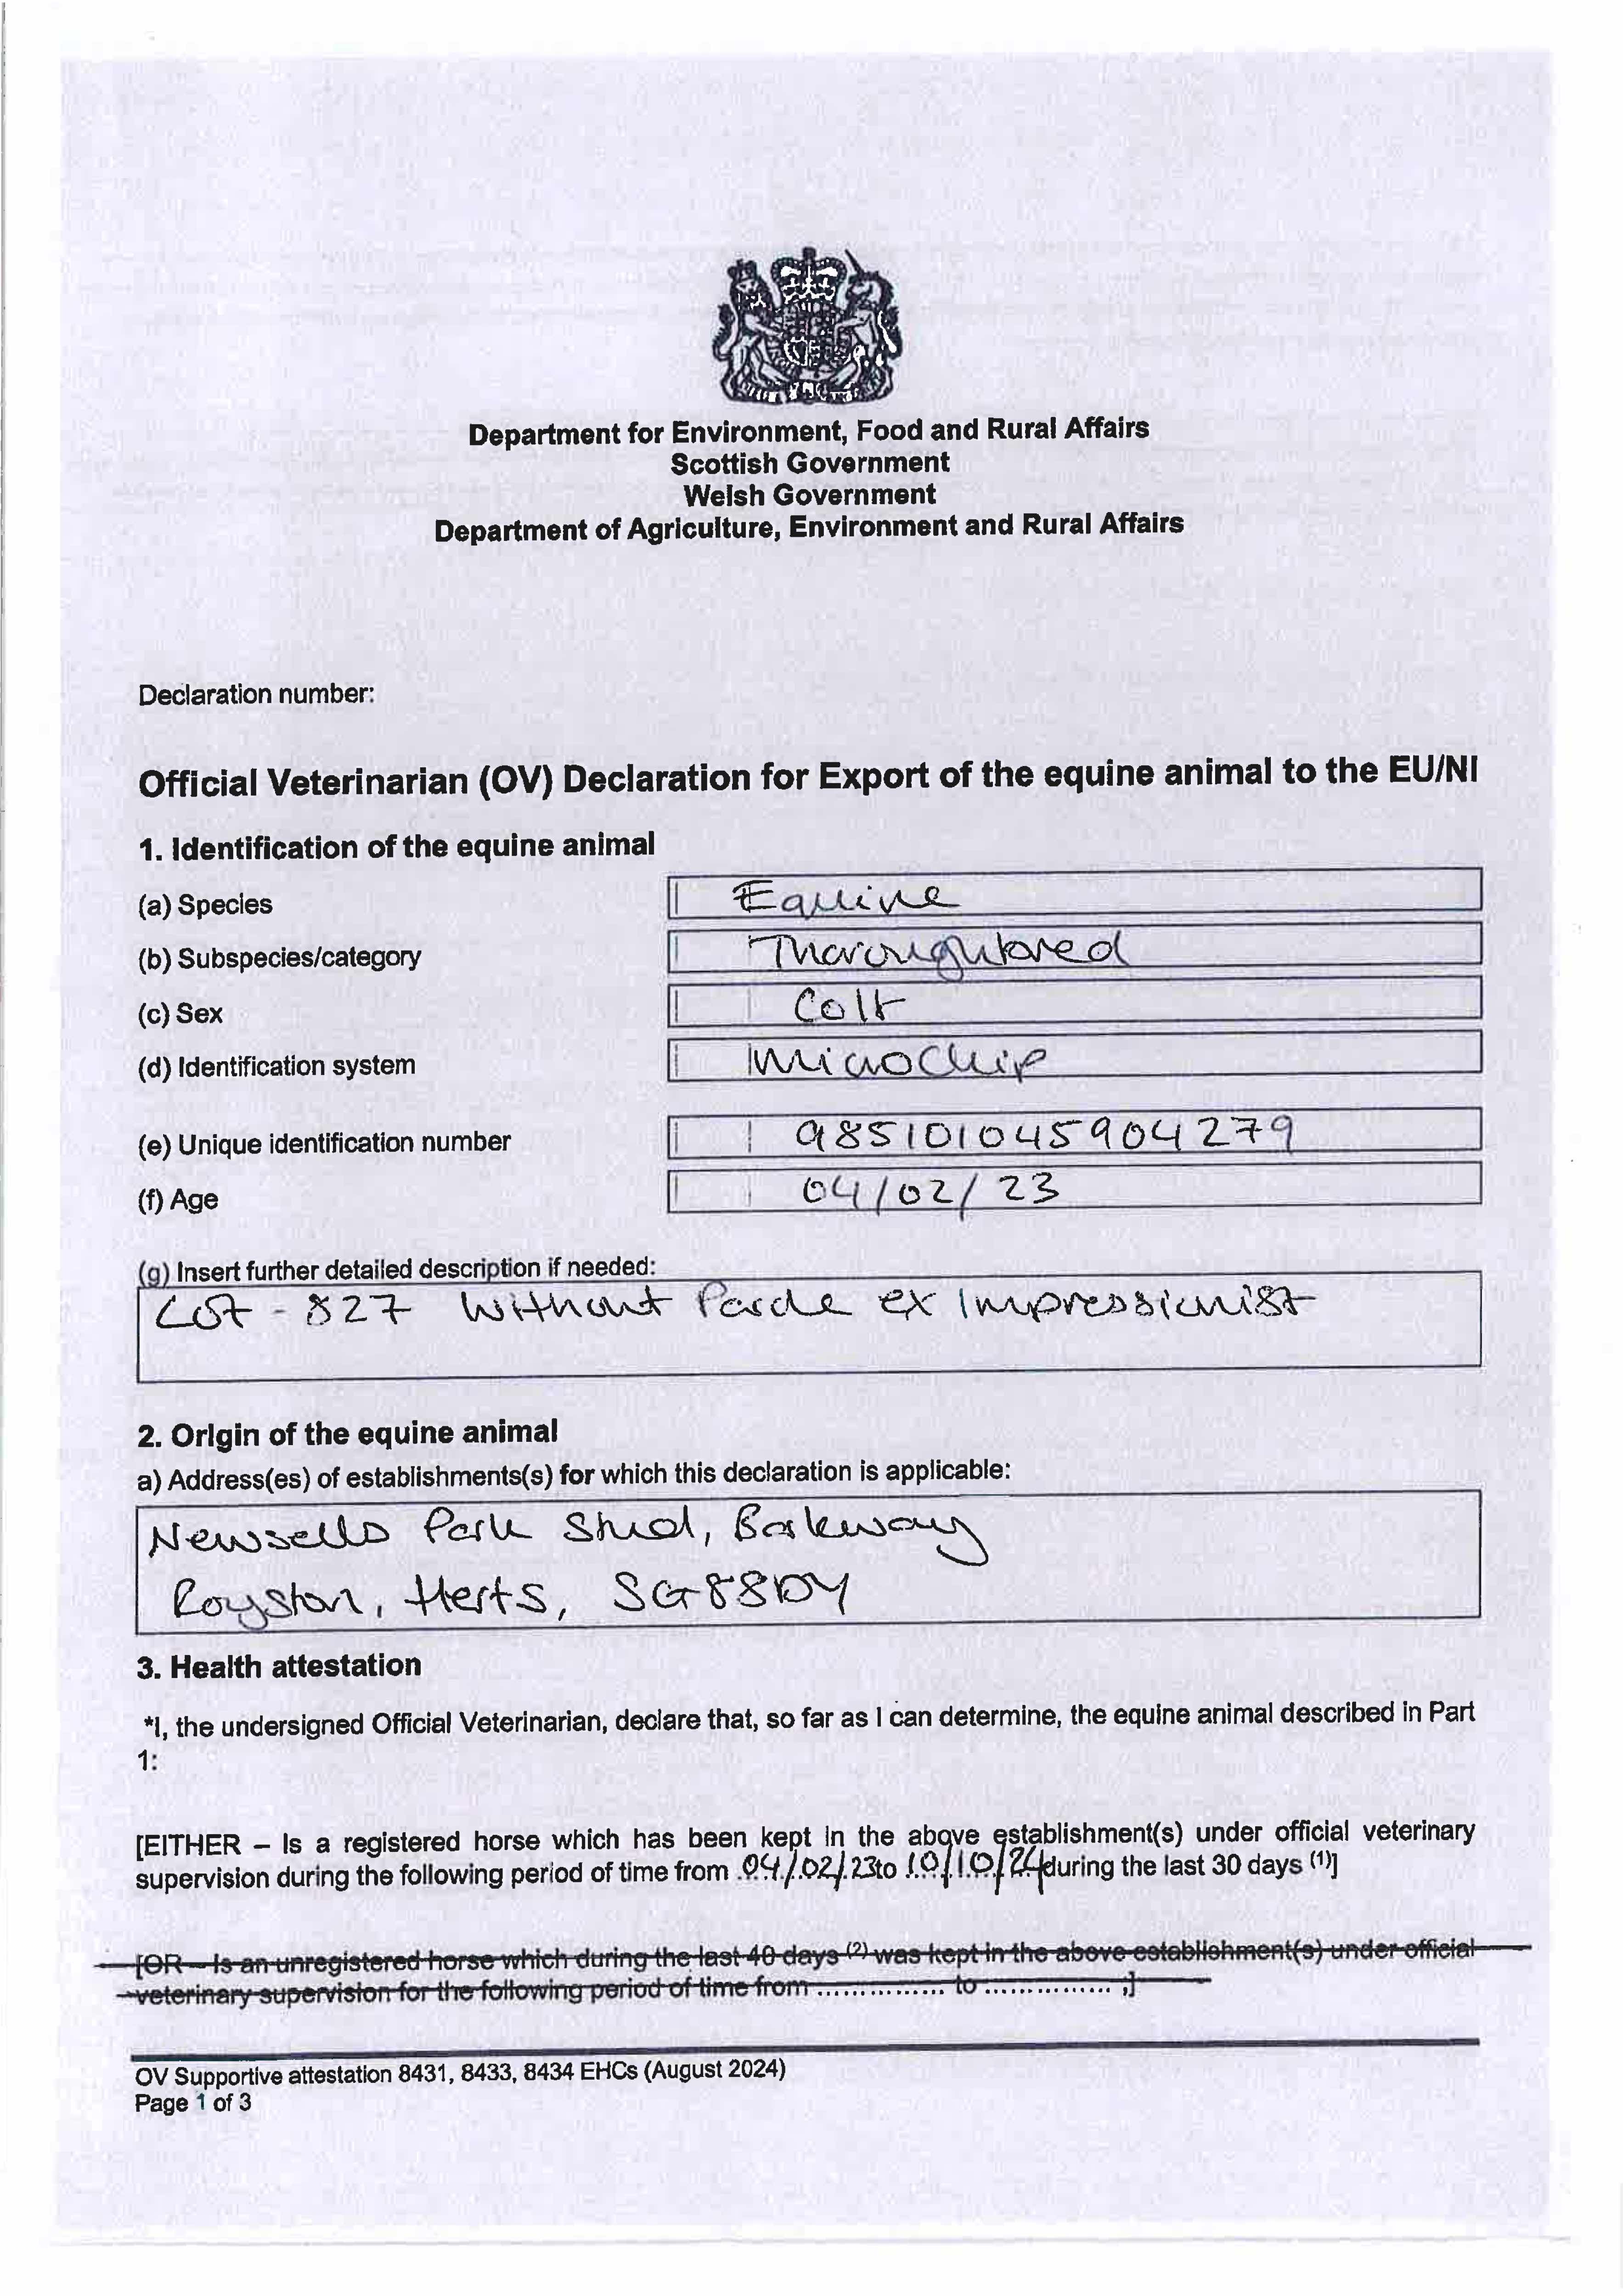 Department for Environment, Food and Rural Affairs
Scottish Government
Welsh Government
Department of Agriculture, Environment and Rural Affairs
Declaration number:
Official Veterinarian (OV) Declaration for Export of the equine animal to the EU/NI
1. Identification of the equine animal
(a) Species Equine
(b) Subspecies/category Thoroughbred
(c) Sex Colt
(d) Identification system Microchip
(e) Unique identification number 985101045904279
(f) Age 04/02/23
(g) Insert further detailed description if needed:
Lot - 827 Without Parole ex Impressionist
2. Origin of the equine animal
a) Address(es) of establishments(s) for which this declaration is applicable:
Newsells Park Stud, Barkway
Royston, Herts, SG88DY
3. Health attestation
*I, the undersigned Official Veterinarian, declare that, so far as I can determine, the equine animal described in Part
1:
[EITHER – Is a registered horse which has been kept in the above establishment(s) under official veterinary
supervision during the following period of time from 04/02/23 to 10/10/24 during the last 30 days (1)]
[OR – Is an unregistered horse which during the last 40 days (2) was kept in the above establishment(s) under official
veterinary supervision for the following period of time from ............... to ............... ;]
OV Supportive attestation 8431, 8433, 8434 EHCs (August 2024)
Page 1 of 3